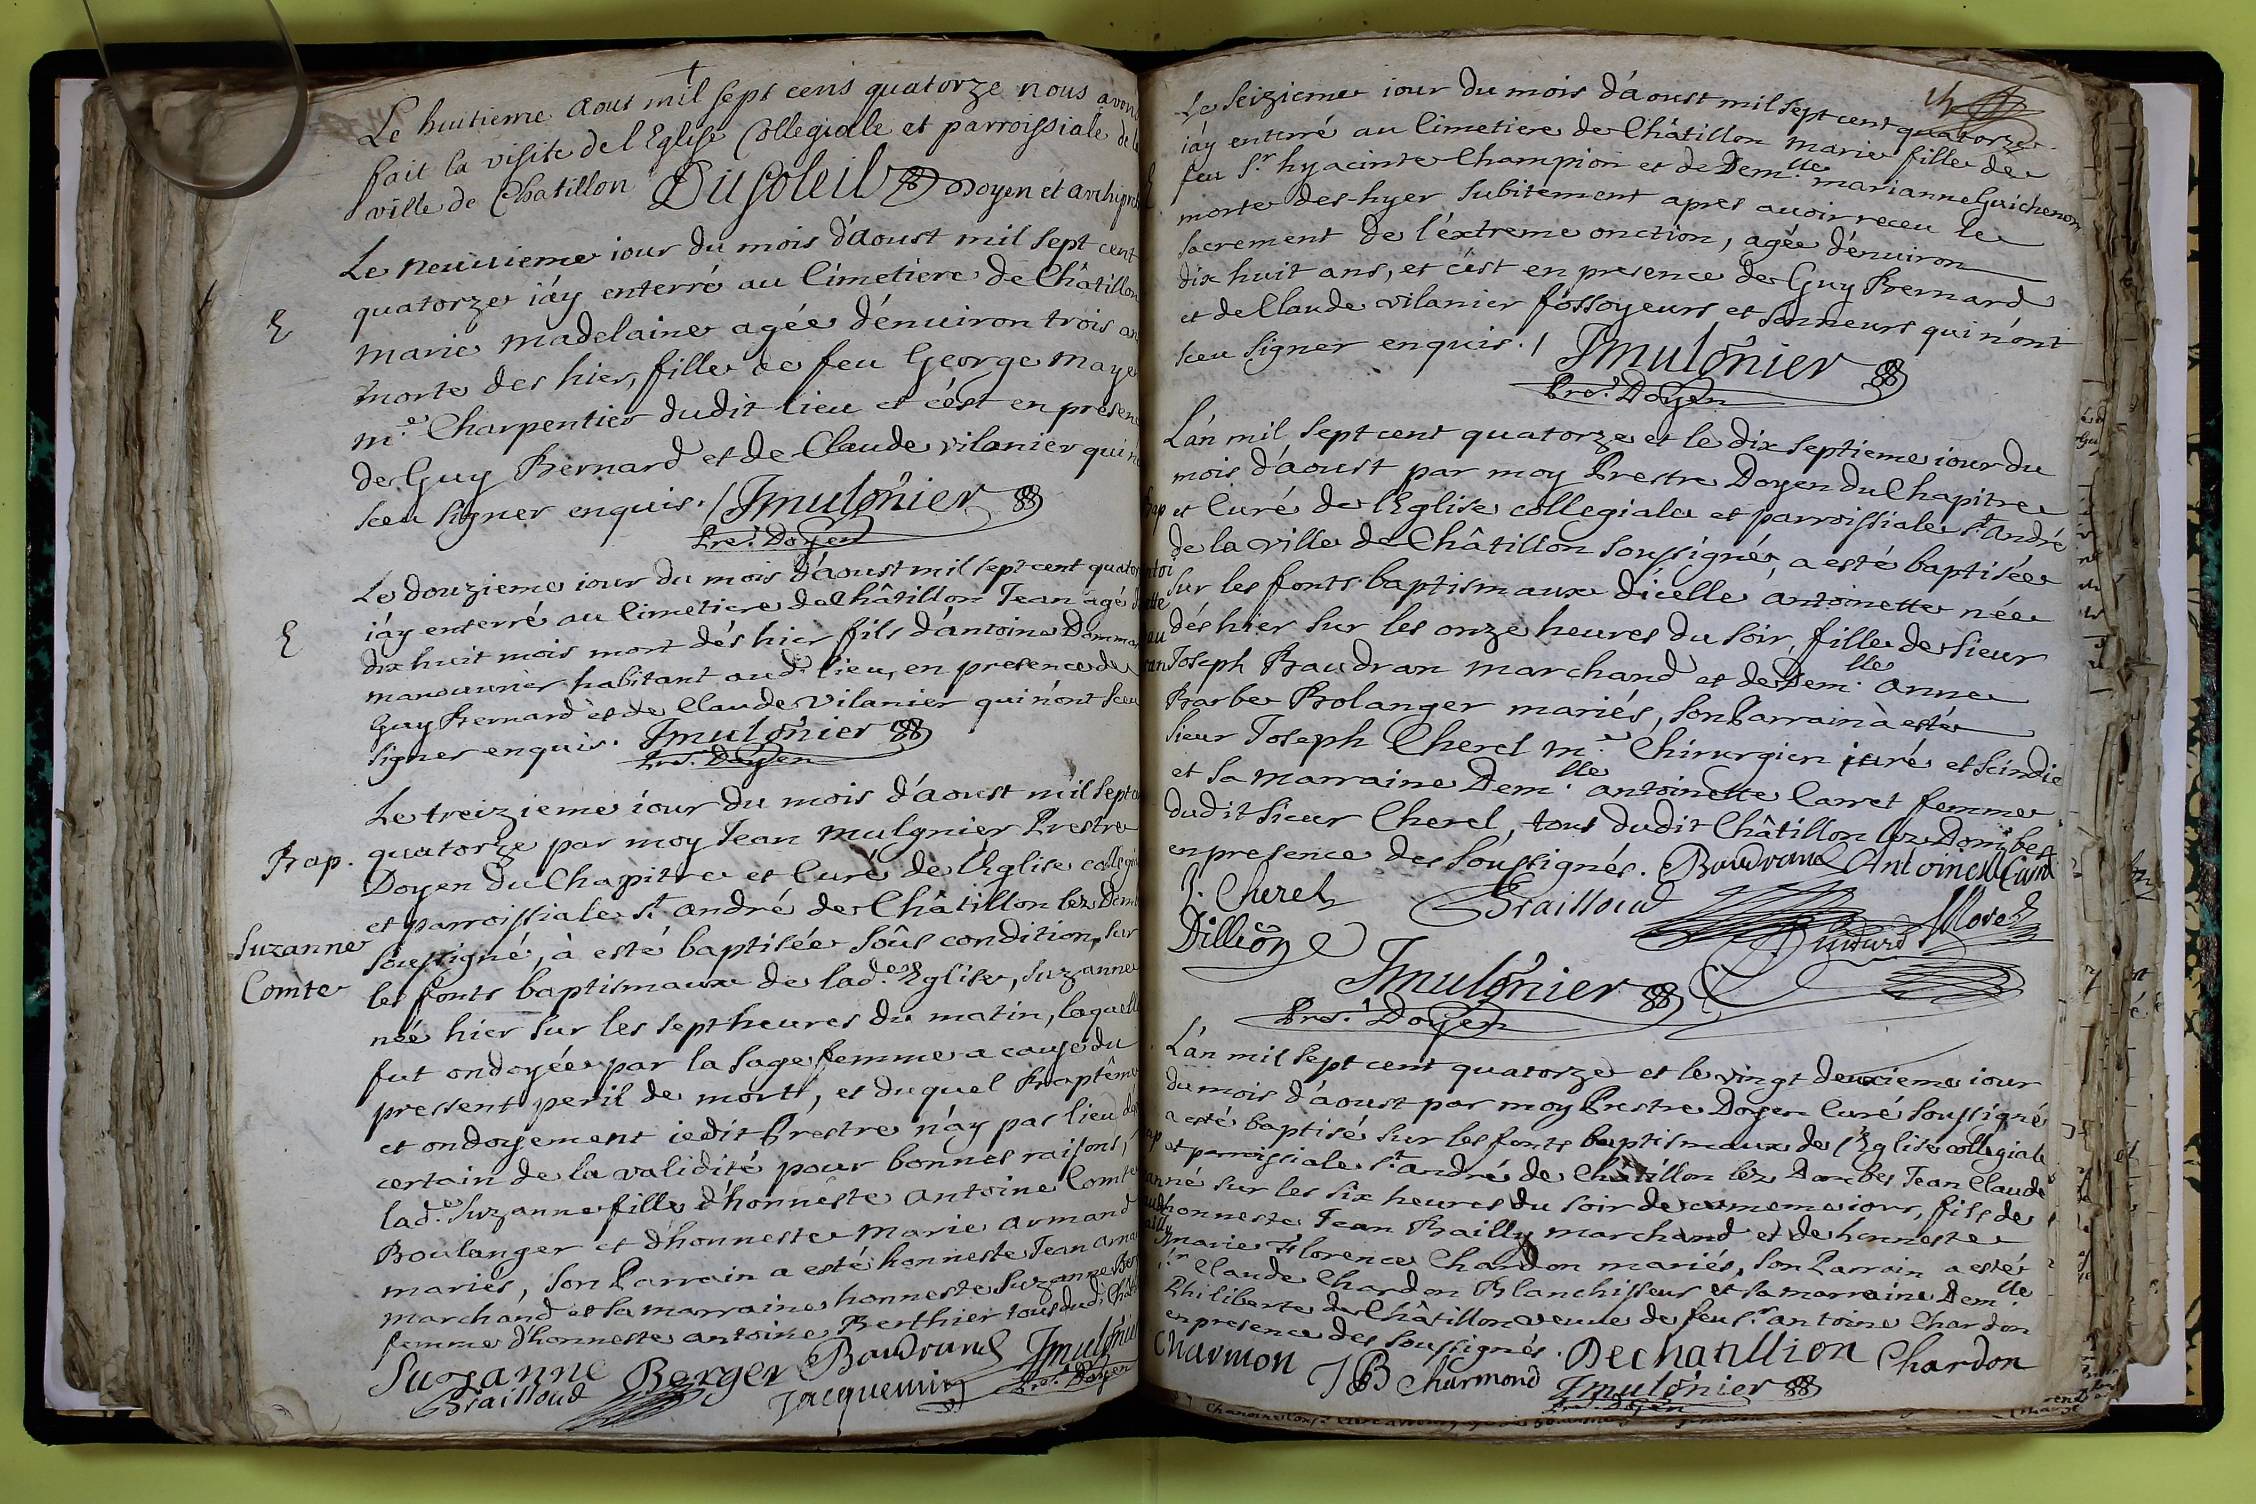 Le huitieme Aout mil sept cens quatorze nous avon
fait la visite de l Eglise Collegialle et parroissiale de la
ville de Chatillon Dusoleil Doyen et archipr
Le neuuieme iour du mois d'áoust mil sept cent
E
quatorze i'áy enterré au Cimetiere de Châtillon
marie madelaine agée d'enuiron trois an
morte des hier, fille de feu George maye
m.e Charpentier dudit lieu et c'ést en presen
de Guy Bernard et de Claude vilanier qui n
sceu signer enquis. / Jmulônier
Pre.t Doyen
Le douzieme iour du mois d'áoust mil sept cent quator
E
i'áy enterré au Cimetiere de Châtillon Jean agé d
dix huit mois mort dés hier fils d'ántoine Domma
manouurier habitant aud. lieu, en presence de
Guy Bernard et de Claude Vilanier qui n'ónt sceu
signer enquis. Jmulônier
Pre.t Doyen
Le treizieme iour du mois d'áoust mil sept c
Bap.
quatorze par moy Jean mulônier Prestre
Doyen du Chapitre et Curé de l'Eglise collegi
et parroissiale S.t André de Châtillon lez Domb
Suzanne
Comte
soussigné, à esté baptisée soûs condition, sur
les fonts baptismaux de lad.e Eglise, Suzanne
née hier sur les sept heures du matin, laquell
fut ondoyée par la sage femme a cause du
pressent peril de mort, et duquel Baptême
et ondoyement iedit Prestre n'áy pas lieu d
certain de la validité pour bonnes raisons,
lad.e Suzanne fille d'honneste Antoine Comte
Boulanger et d'honneste Marie Armand
mariés, son Parrain a esté honneste Jean Arma
marchand et sa marraine honneste Suzanne Ber
femme d'honneste antoine Berthier tous dud. Chât
Suzanne Berger Baudrand Jmulônier
Brailloud Jacquemin Pre.t Doyen
Le seizieme iour du mois d'áoust mil sept cent quatorze
E
i'áy enterré au Cimetiere de Châtillon marie fille de
feu S.r hyacinte Champion et de Dem.lle marianne Guichenon
morte des-hyer subitement apres auoir receu le
sacrement de l'éxtreme onction, agée d'enuiron
dix huit ans, et c'ést en presence de Guy Bernard
et de Claude vilanier fossoyeurs et sonneurs qui n'ónt
sceu signer enquis. / Jmulônier
Pre.t Doyen
L'án mil sept cent quatorze et le dix septieme iour du
mois d'áoust par moy Prestre Doyen du Chapitre
Bap
et Curé de l'Eglise collegiale et parroissiale S.t André
de la ville de Châtillon soussigné, a esté baptisée
sur les fonts baptismaux d'icelle antoinette née
dés hier sur les onze heures du soir, fille de sieur
Joseph Baudran marchand et de Dem.lle anne
Barbe Bolanger mariés, son Parrain à esté
sieur Joseph Cherel m.e Chirurgien iuré et scindic
et sa marraine Dem.lle antoinette Carret femme
dudit sieur Cherel, tous dudit Châtillon lez Dombes
en presence des soussignés. Baudrand Antoinette Carret
J. Cherel Brailloud
Dilliôn Morel
Jmulônier
Pre.t Doyen
L'án mil sept cent quatorze et le vingt deuxieme iour
du mois d'áoust par moy Prestre Doyen Curé soussigné
a esté baptisé sur les fonts baptismaux de l'Eglise collegiale
et parroissiale S.t André de Châtillon lez Dombes Jean Claude
né sur les six heures du soir de ce meme iour, fils de
honneste Jean Bailly marchand et de honneste
marie Florence Chardon mariés, son Parrain a esté
s.r Claude Chardon Blanchisseur et sa marraine Dem.lle
Philiberte de Châtillon veuue de feu s.r antoine Chardon
en presence des soussignés. Dechatillion Chardon
Charmon JB Charmond Jmulônier
Pre.t Doyen